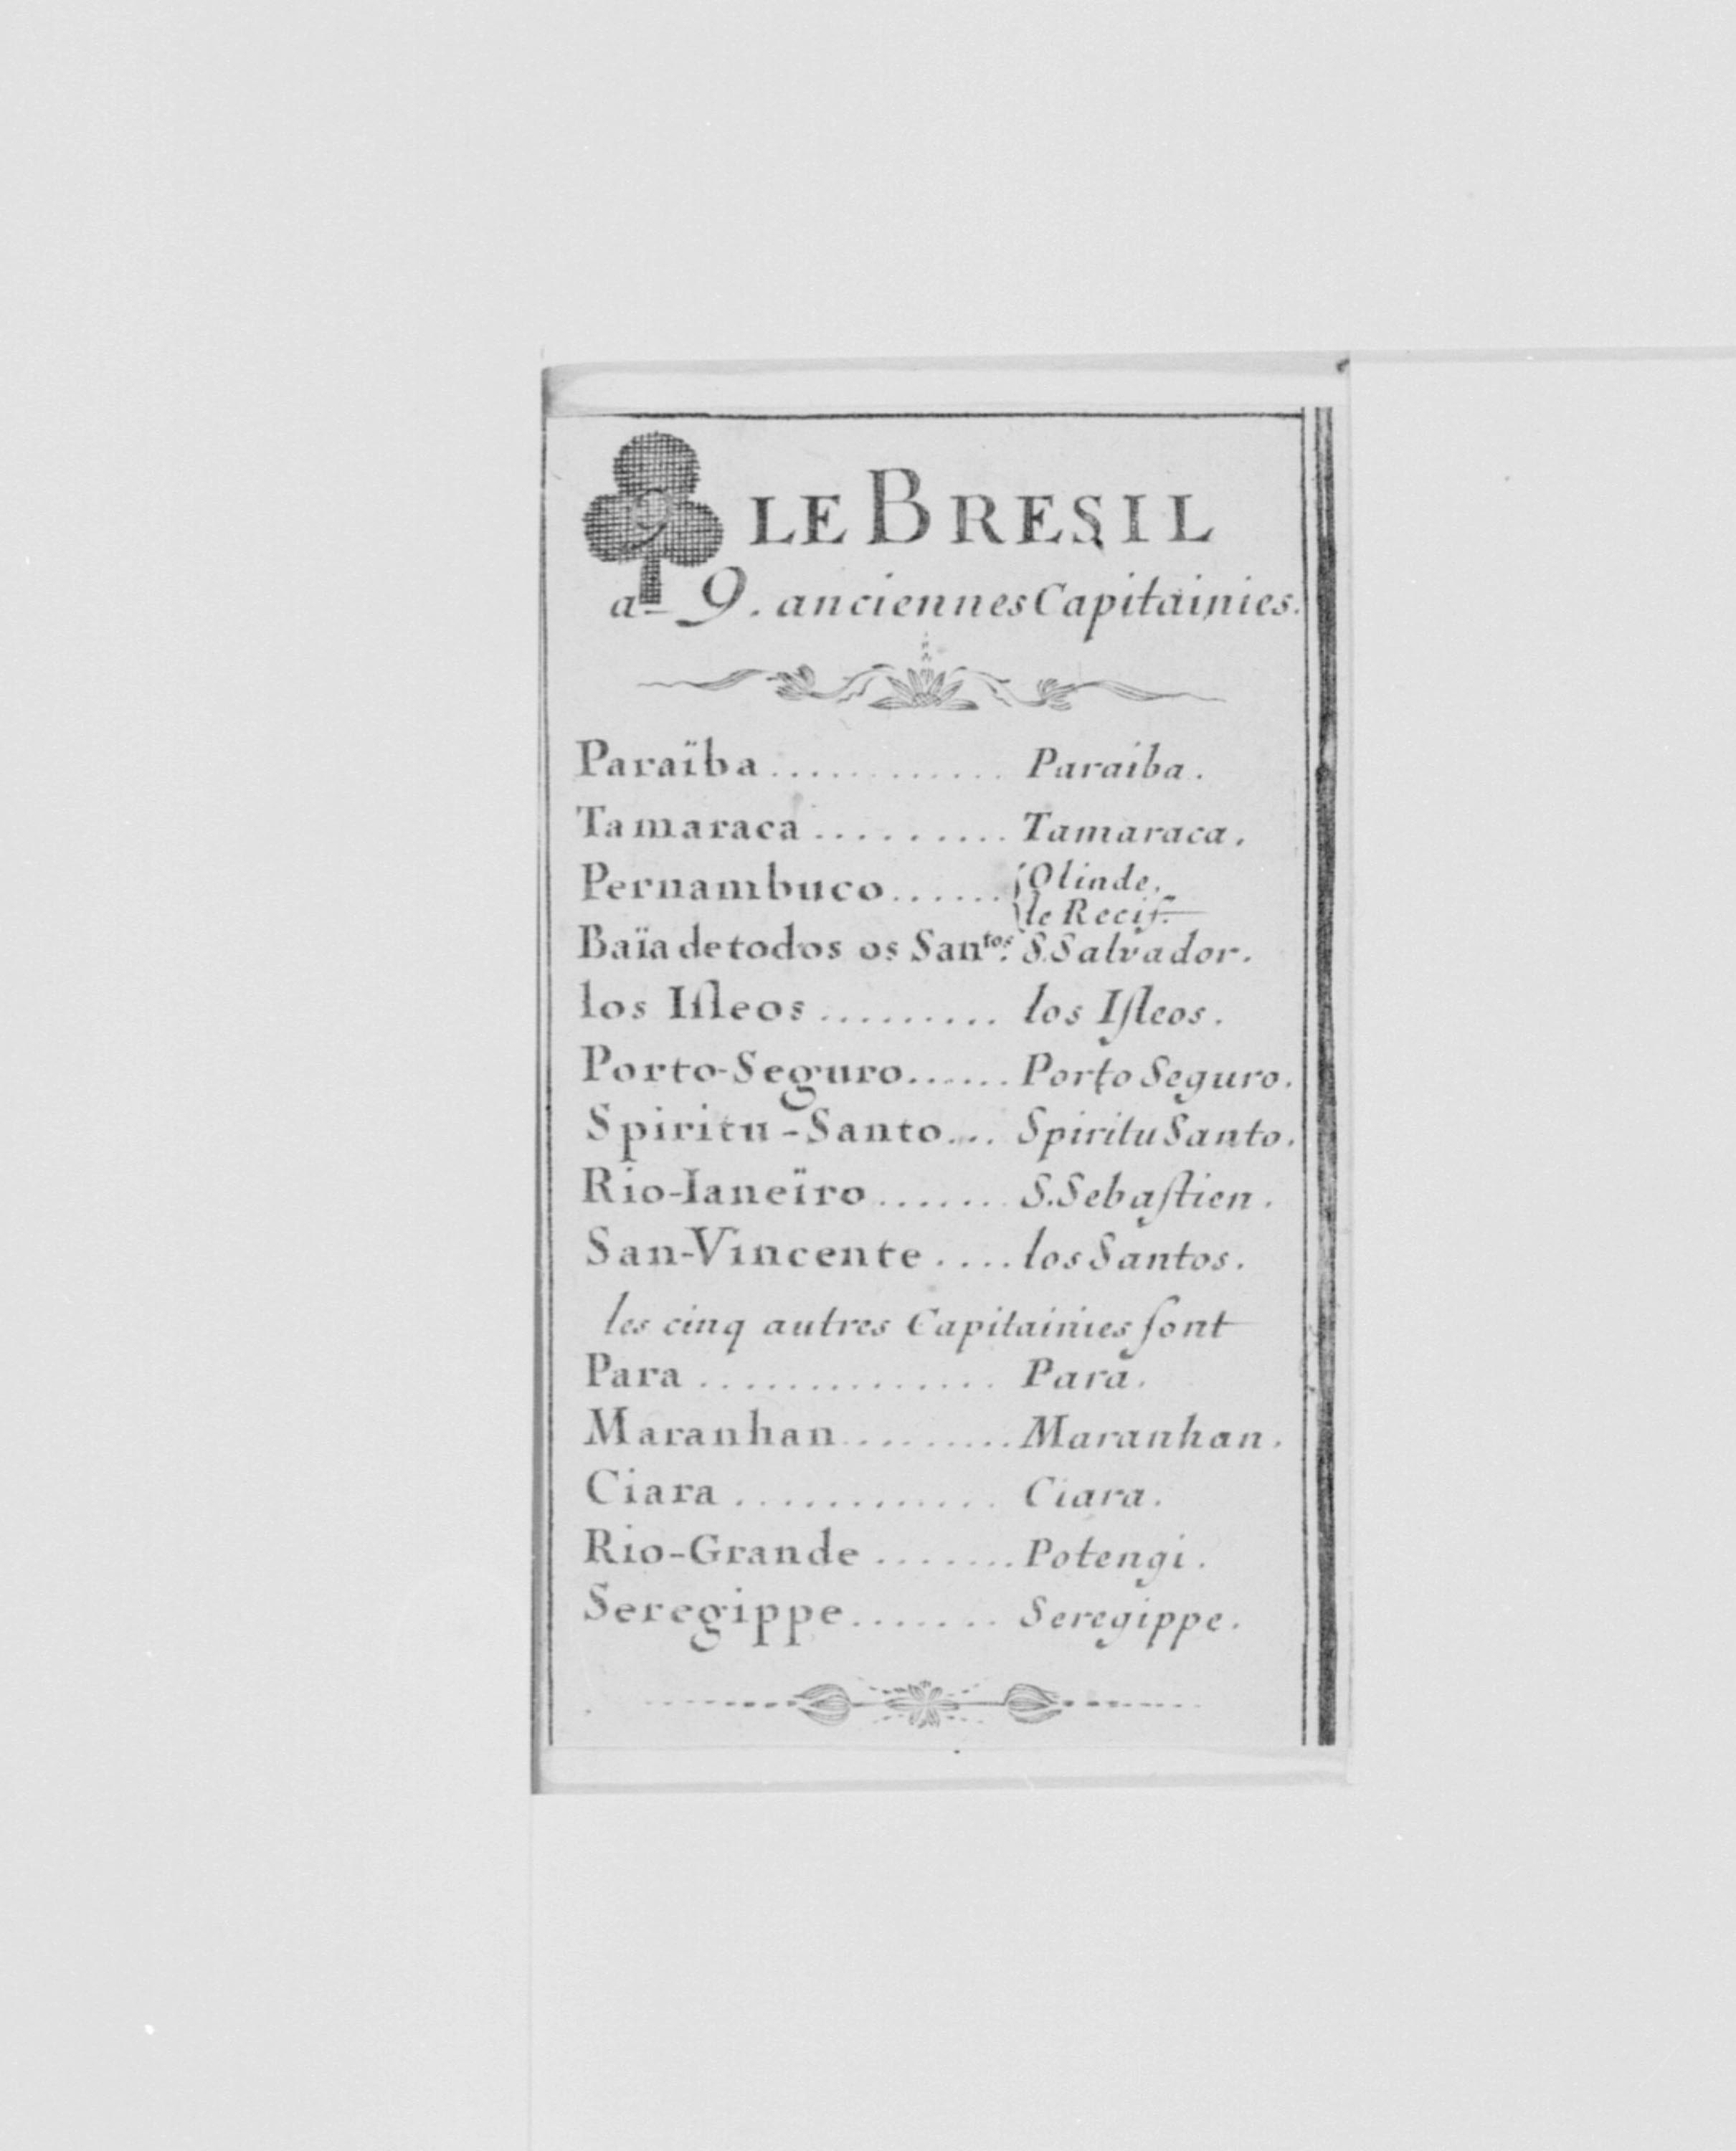 9
LE BRESIL
a 9. anciennes Capitainies.
Paraïba ............ Paraiba.
Tamaraca .......... Tamaraca.
Pernambuco ...... { Olinde.
le Recif.
Baïa de todos os San^tos. S. Salvador.
los Iſleos ......... los Iſleos.
Porto-Seguro...... Porto Seguro.
Spiritu-Santo.... Spiritu Santo.
Rio-Ianeïro ....... S. Sebaſtien.
San-Vincente .... los Santos.
les cinq autres Capitainies ſont
Para .............. Para.
Maranhan ......... Maranhan.
Ciara ............. Ciara.
Rio-Grande ....... Potengi.
Seregippe....... Seregippe.